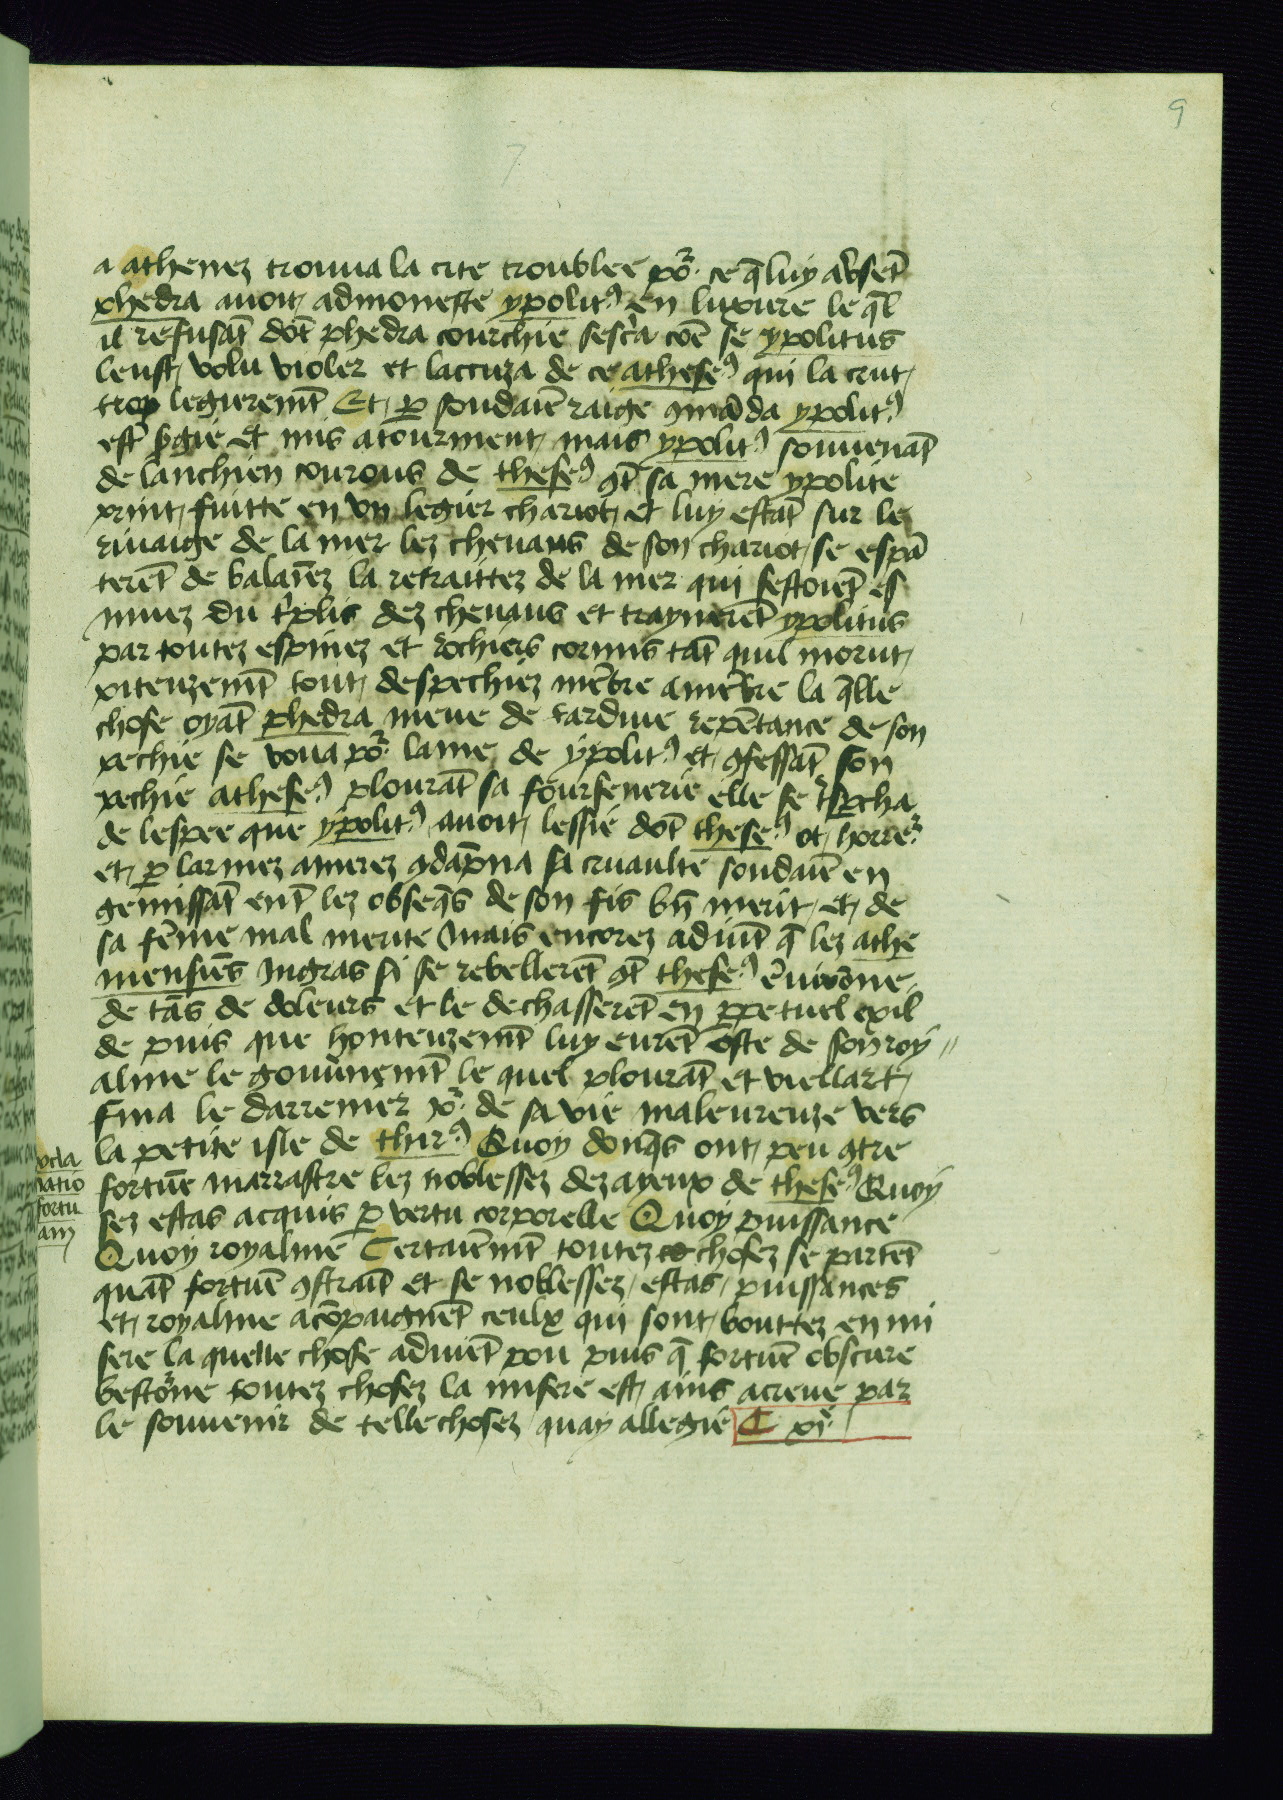 9
7
a athenez trouua la cite troublee po᷑ ce q̄ luy absēt
phedra auoit admoneste ypolitꝰ en luxure le q̄l
il refusāt dōt phedra courchie sesc̄a cōe se ypolitus
leust volu violer et laccuza de ce atheseꝰ qui la crut
trop legieremt̄ Et ꝑ soudaiē raige ꝯmāda ypolitꝰ
est̄ et mis atourment mais ypolitꝰ souuenāt
de lanchien courous de theseꝰ ꝯt̄ sa mere ypolite
print fuitte en vn legier chariot et luy estāt sur le
riuaige de la mer lez cheuaus de son chariot se espā
terēt de balaiēz la retraittez de la mer qui sestoiēt es
muez du dez cheuaus et traynerēt ypolitus
par toutez espinez et rochiers cornus tāt quil morut
piteuzemt̄ tout despechiez mēbre a mēbre la q̄lle
chose oyāt phedra meue de tardiue repētance de son
pechie se voua po᷑ lame de ypolitꝰ et ꝯfessāt son
pechie atheseꝰ plourāt sa foursenerie elle se
de lespee que ypolitꝰ auoit lessie dōt theseꝰ ot horre᷑
et ꝑ larmez amerez ꝯdāpna sa cruaulte soudaiē en
gemissāt lez obseq̄s de son fis bn̄ merit et de
sa fēme mal merite Mais encorez aduīt q̄ lez athe
niensiēs Ingras si se rebellerēt ꝯt̄ theseꝰ ēuirōne
de tās de doleurs et le dechasserēt en ꝑpetuel exil
de puis que honteuzemt̄ luy eurēt oste de son roy
alme le gouūnemt̄ le quel plourāt et viellart
fina le darrenier io᷑ de sa vie maleureuze vers
la petite isle de thirꝰ Quoy donq̄s ont peu ꝯtre
fortūe marrastre lez noblessez dez ayeux de theseꝰ Quoy
sez estas acquis ꝑ vertu corporelle Quoy puissance
Quoy royalme Certaiēmt̄ toutez chosez se partēt
quāt fortūe ꝯstraīt et se noblessez / estas / puissances
et royalme acōpaignēt ceulx qui sont bouttez en mi
sere la quelle chose aduiēt pou puis q̄ fortūe obscure
bestōrne toutez chosez la misere est ains acreue par
le souuenir de telle chosez quay allegie C xjᵉ
xcla
natio
fortu
am